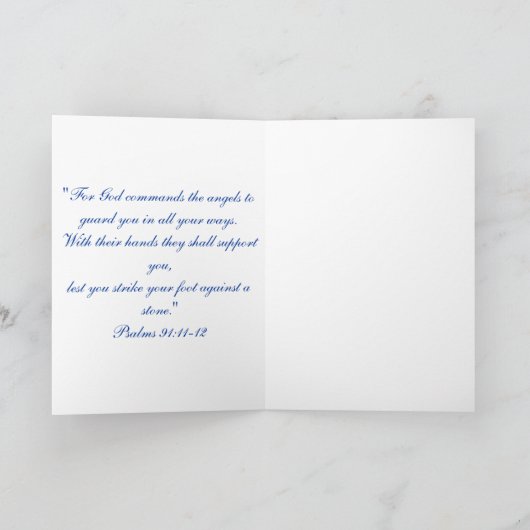 "For God commands the angels to
guard you in all your ways.
With their hands they shall support
you,
lest you strike your foot against a
stone."
Psalms 91:11-12